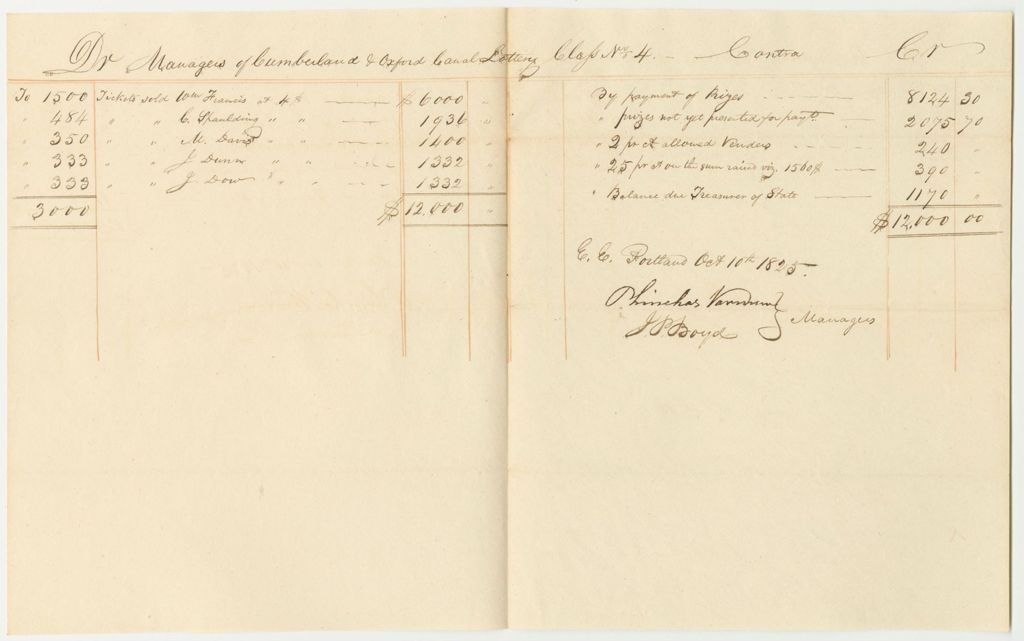 Dr Managers of Cumberland & Oxford Canal Lottery Class No. 4. - Contra Cr
To 1500 Tickets sold Wm Francis at 4$ $ 6000 "
" 484 " " C. Spaulding " " 1936 "
" 350 " " M. Davis 1400 "
" 333 " " J. Dunn " " 1332 "
" 333 " " J. Dow " " " 1332 "
3000 $ 12.000 "
By payment of Prizes 8124 30
" prizes not yet presented for paymt. 2075 70
" 2 pr ct allowed Venders 240 "
" 25 pr ct on the sum raised viz. 1560$ 390 "
" Balance due Treasurer of State 1170 "
$ 12,000 00
E. E. Portland Oct 10th 1825.
Phinehas Varnum
J. P. Boyd } Managers